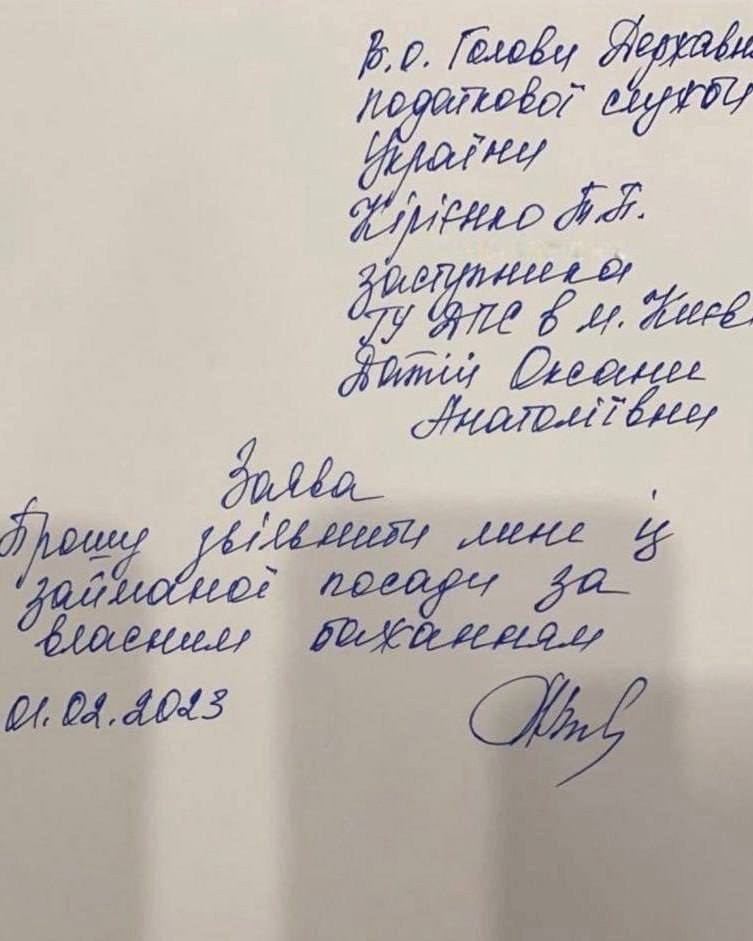 В.о. Голови Державн
податкової служби
України
Кірієнко Т.П.
заступника
ГУ ДПС в м. Києв
Датій Оксани
Анатоліївни
Заява
Прошу звільнити мене із
займаної посади за
власним бажанням
01.02.2023